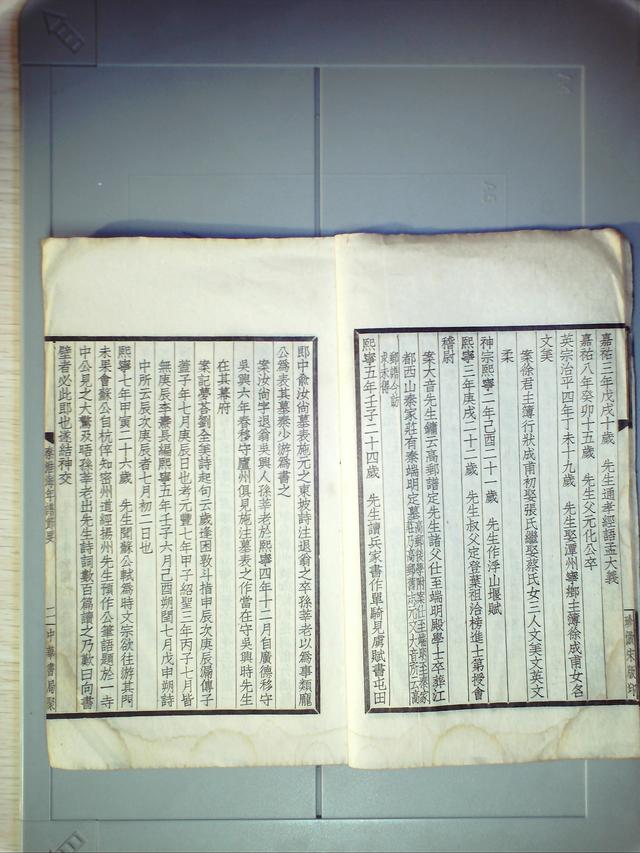 嘉祐三年戊戌十歲　先生通孝經語孟大義
嘉祐八年癸卯十五歲　先生父元化公卒
英宗治平四年丁未十九歲　先生娶潭州寧鄉主簿徐成甫女名
文美
案徐君主簿行狀成甫初娶張氏繼娶蔡氏女三人文美文英文
柔
神宗熙寧二年己酉二十一歲　先生作浮山堰賦
熙寧三年庚戌二十二歲　先生叔父定登葉祖洽榜進士第授會
稽尉
案大音先生鏞云高郵譜定先生諸父仕至端明殿學士卒葬江
都西山秦家莊有秦端明定墓
熙寧五年壬子二十四歲　先生讀兵家書作單騎見虜賦書屯田
郎中兪汝尙墓表施元之東坡詩注退翁之卒孫莘老以爲事類龐
公爲表其墓秦少游爲書之
案汝尙字退翁吳興人孫莘老於熙寧四年十二月自廣德移守
吳興六年春移守廬州俱見施注墓表之作當在守吳興時先生
在其幕府
案記夢答劉全美詩起句云歲逢困敦斗指申辰次庚辰漏傳子
蓋子年七月庚辰日也考元豐七年甲子紹聖三年丙子七月皆
無庚辰李燾長編熙寧五年壬子六月己酉朔閏七月戊申朔詩
中所云辰次庚辰者七月初二日也
熙寧七年甲寅二十六歲　先生聞蘇公軾爲時文宗欲往游其門
未果會蘇公自杭倅知密州道經揚州先生預作公筆語題於一寺
中公見之大驚及晤孫莘老出先生詩詞數百篇讀之乃歎曰向書
壁者必此郎也遂結神交
秦淮海年譜節要
二
中華書局聚